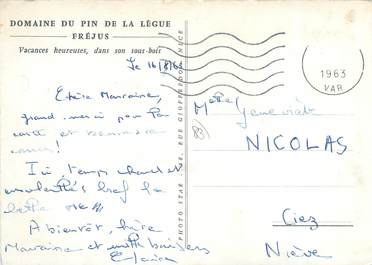 DOMAINE DU PIN DE LA LÈGUE
FRÉJUS
Vacances heureuses, dans son sous-bois
le 16/8/63
Chère Marraine,
grand merci pour ta
carte et
Ici, temps chaud et
bref la
belle vie !!!
A bientôt, chère
Marraine et mille baisers
PHOTO STAR RUE GIOFFREDO NICE
1963
VAR
Geneviève
83
NICOLAS
Ciez
Nièvre